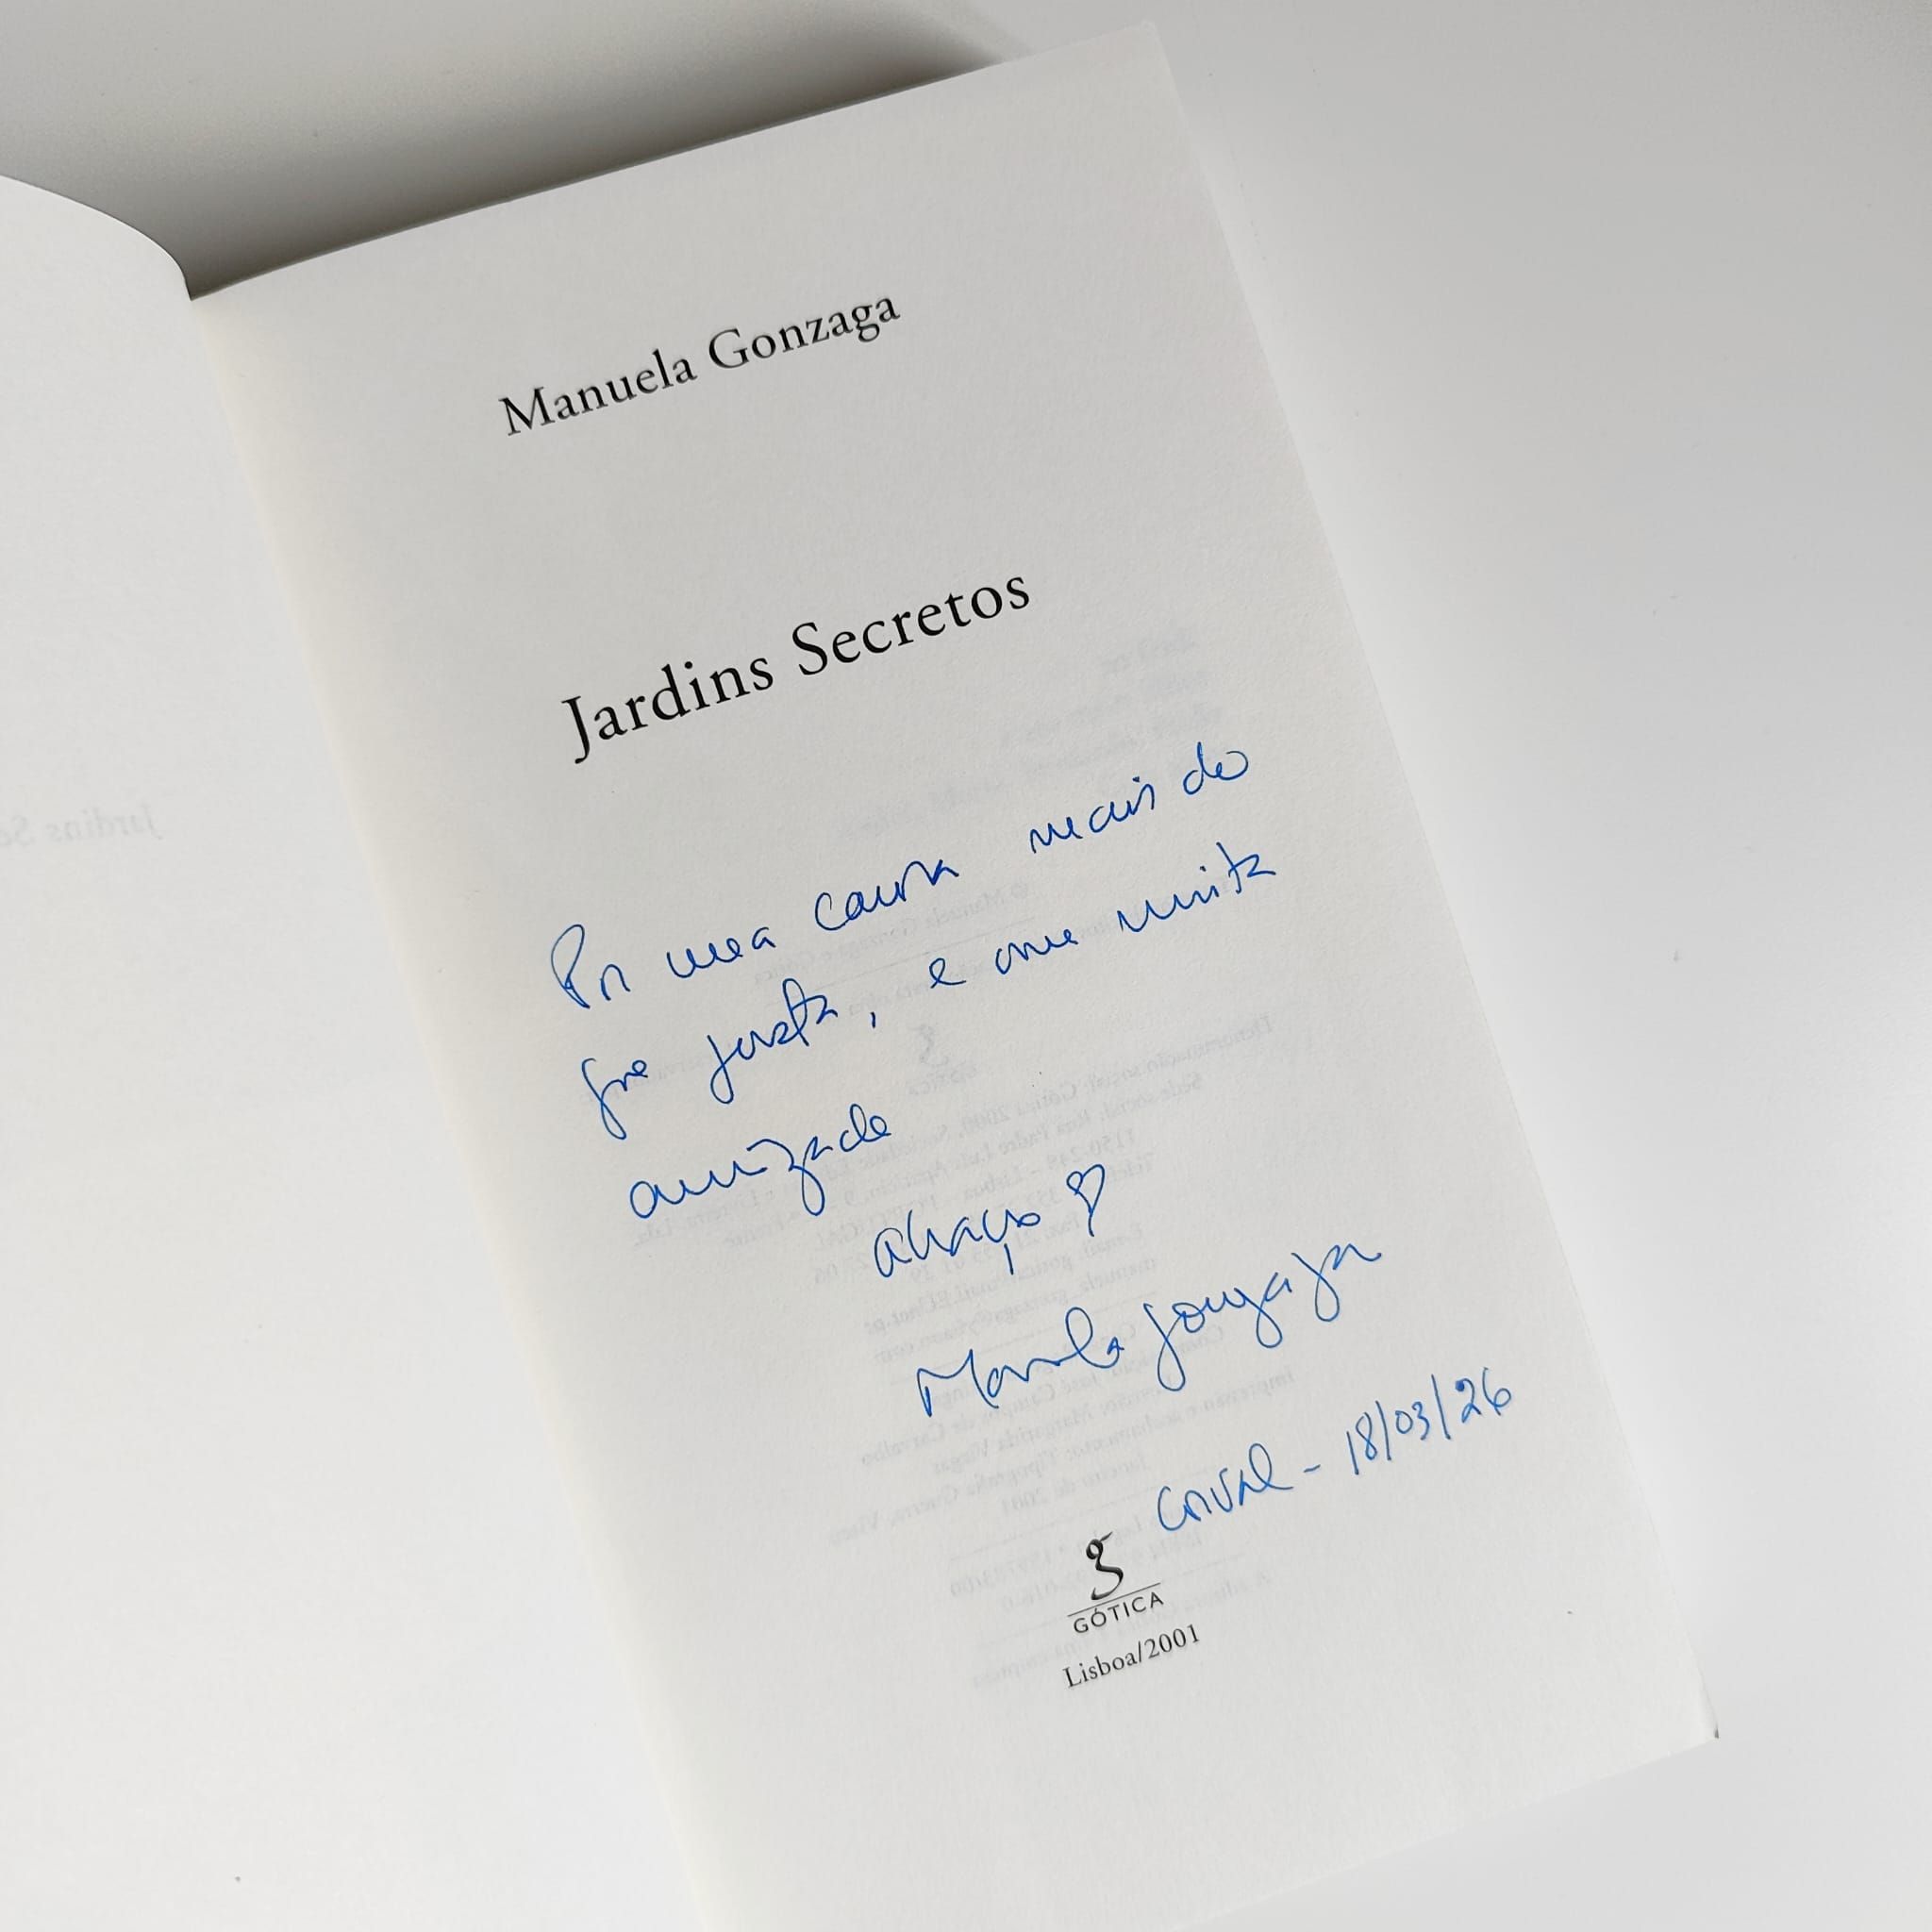 Manuela Gonzaga
Jardins Secretos
Por uma causa mais do
que justa, e com muita
amizade
abraço
Manuela Gonzaga
18/03/26
g
GÓTICA
Lisboa/2001
Jardins